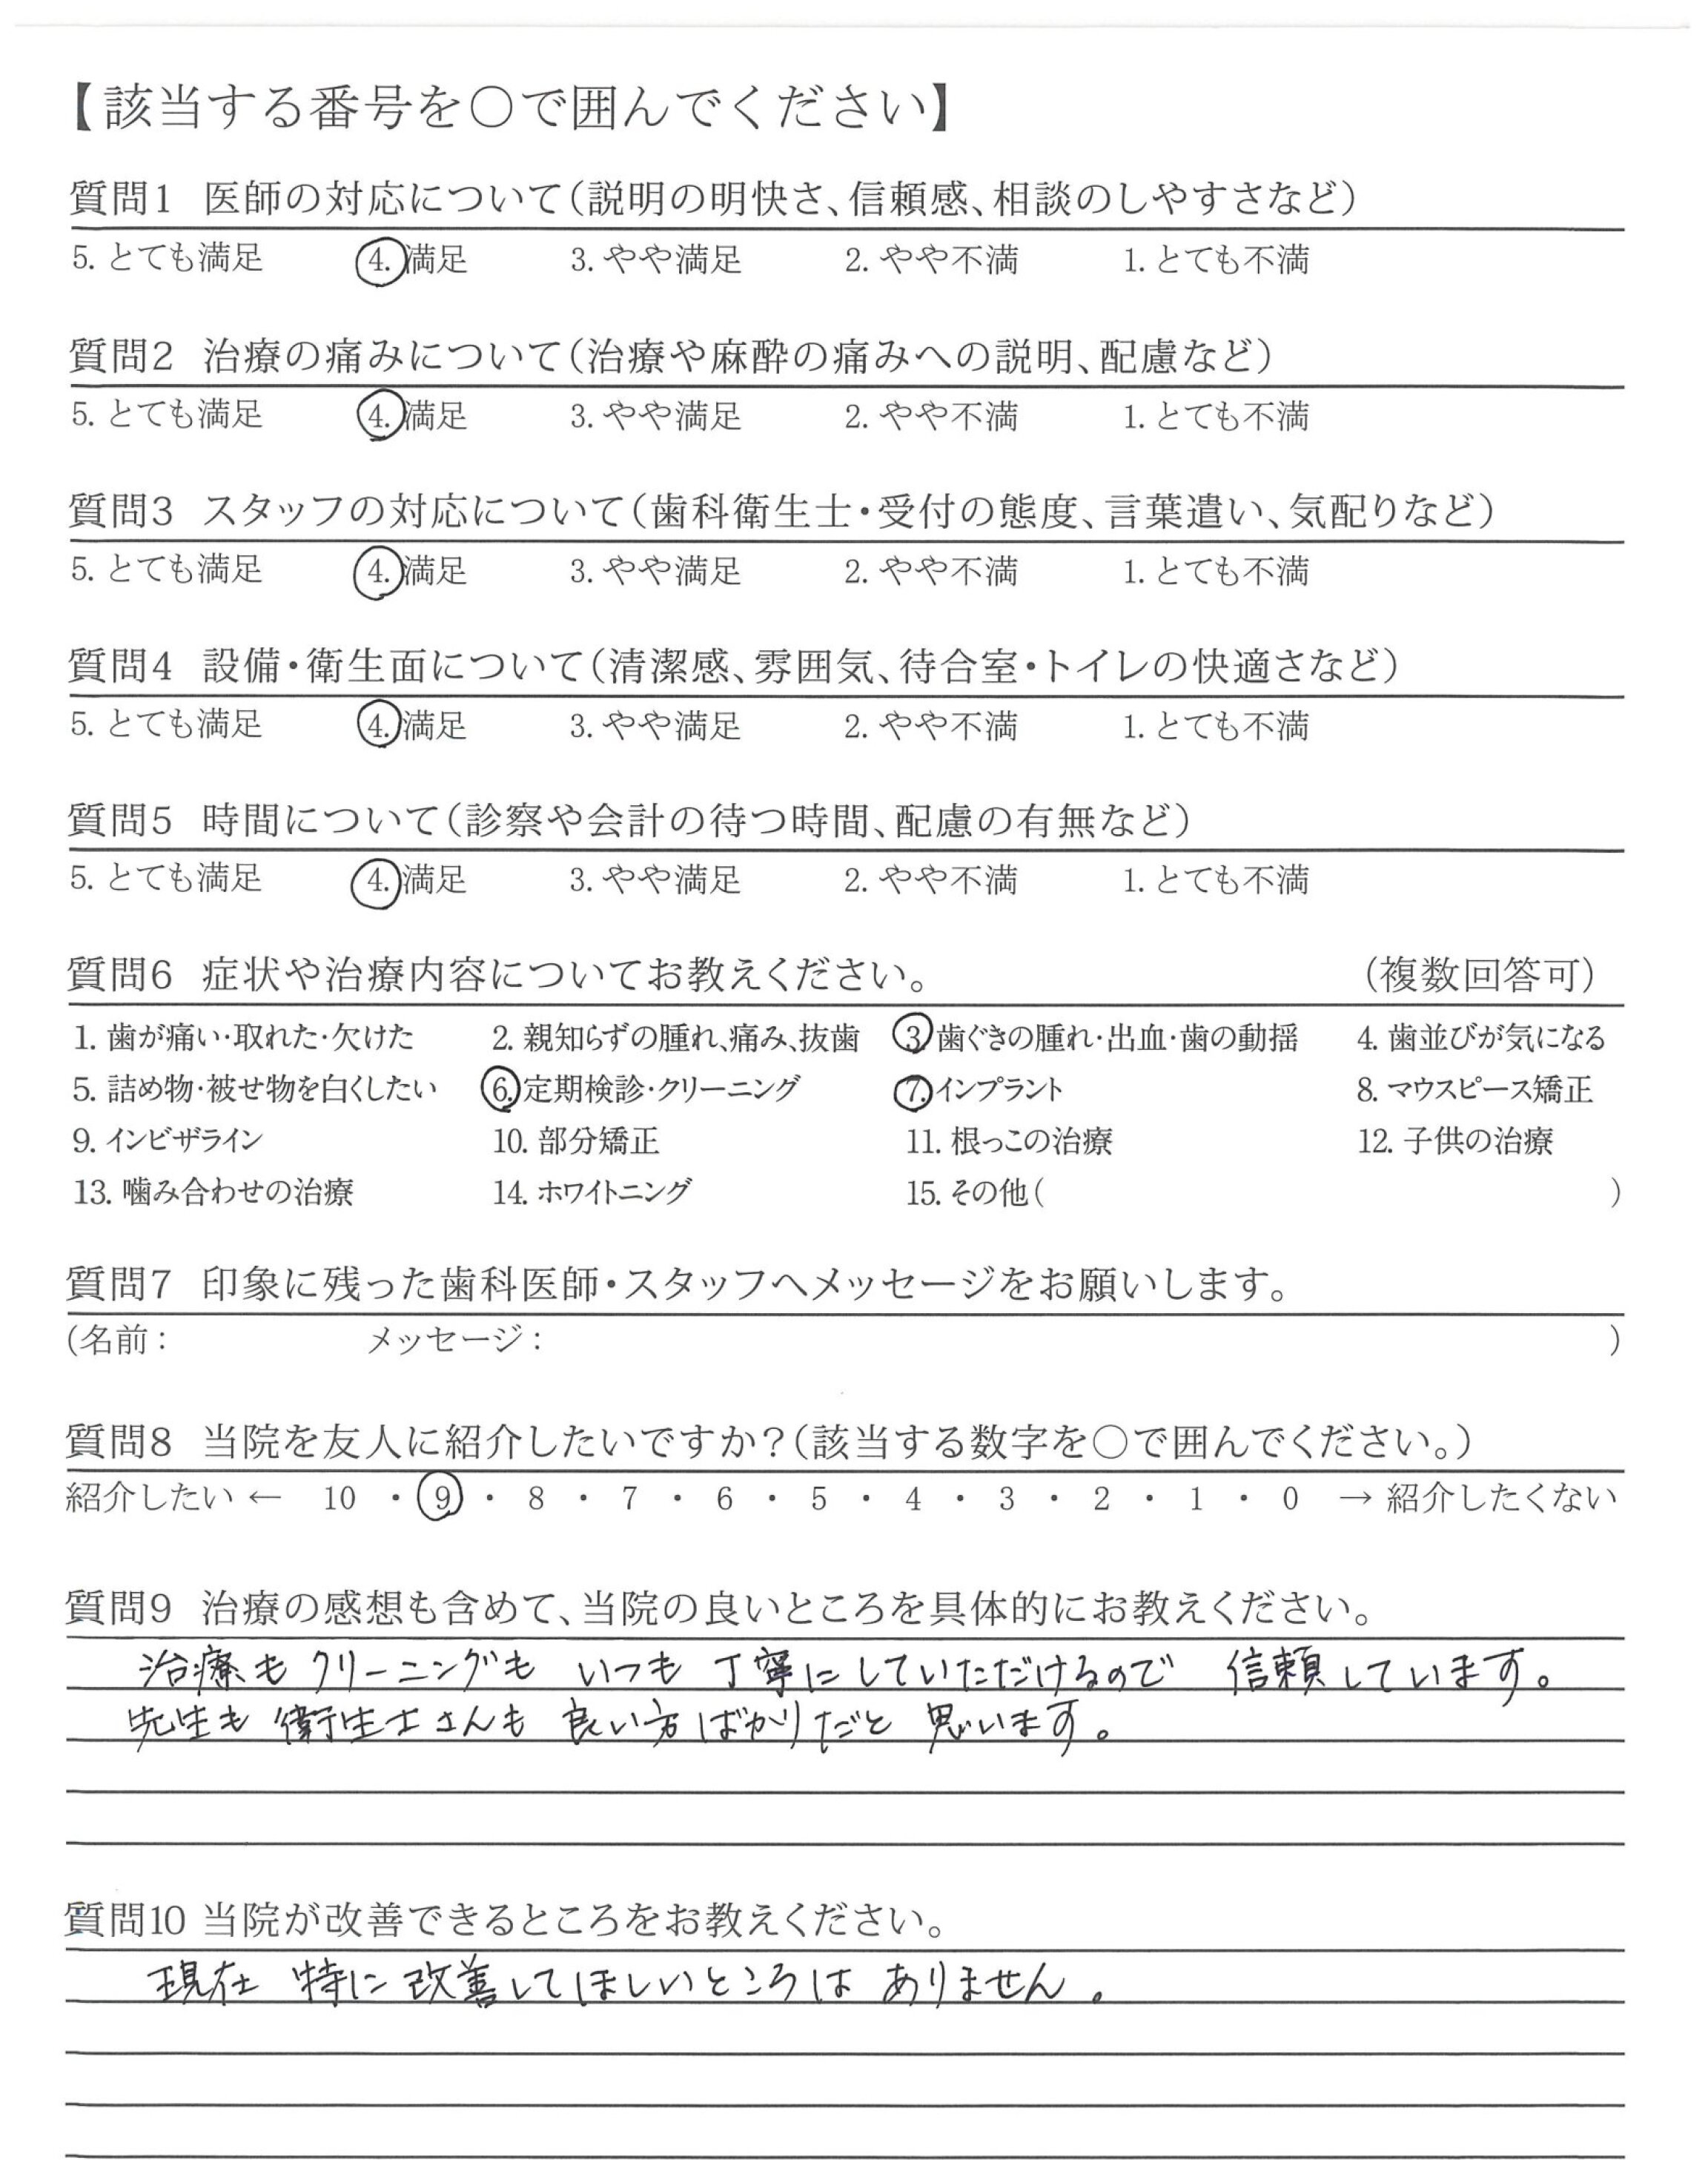 【該当する番号を○で囲んでください】
質問1 医師の対応について（説明の明快さ、信頼感、相談のしやすさなど）
5. とても満足 4. 満足 3. やや満足 2. やや不満 1. とても不満
質問2 治療の痛みについて（治療や麻酔の痛みへの説明、配慮など）
5. とても満足 4. 満足 3. やや満足 2. やや不満 1. とても不満
質問3 スタッフの対応について（歯科衛生士・受付の態度、言葉遣い、気配りなど）
5. とても満足 4. 満足 3. やや満足 2. やや不満 1. とても不満
質問4 設備・衛生面について（清潔感、雰囲気、待合室・トイレの快適さなど）
5. とても満足 4. 満足 3. やや満足 2. やや不満 1. とても不満
質問5 時間について（診察や会計の待つ時間、配慮の有無など）
5. とても満足 4. 満足 3. やや満足 2. やや不満 1. とても不満
質問6 症状や治療内容についてお教えください。 （複数回答可）
1. 歯が痛い・取れた・欠けた 2. 親知らずの腫れ、痛み、抜歯 3. 歯ぐきの腫れ・出血・歯の動揺 4. 歯並びが気になる
5. 詰め物・被せ物を白くしたい 6. 定期検診・クリーニング 7. インプラント 8. マウスピース矯正
9. インビザライン 10. 部分矯正 11. 根っこの治療 12. 子供の治療
13. 噛み合わせの治療 14. ホワイトニング 15. その他（ ）
質問7 印象に残った歯科医師・スタッフへメッセージをお願いします。
（名前： メッセージ： ）
質問8 当院を友人に紹介したいですか？（該当する数字を○で囲んでください。）
紹介したい ← 10 ・ 9 ・ 8 ・ 7 ・ 6 ・ 5 ・ 4 ・ 3 ・ 2 ・ 1 ・ 0 → 紹介したくない
質問9 治療の感想も含めて、当院の良いところを具体的にお教えください。
治療も クリーニングも いつも 丁寧にしていただけるので 信頼しています。
先生も 衛生士さんも 良い方ばかりだと 思います。
質問10 当院が改善できるところをお教えください。
現在 特に 改善してほしいところは ありません。